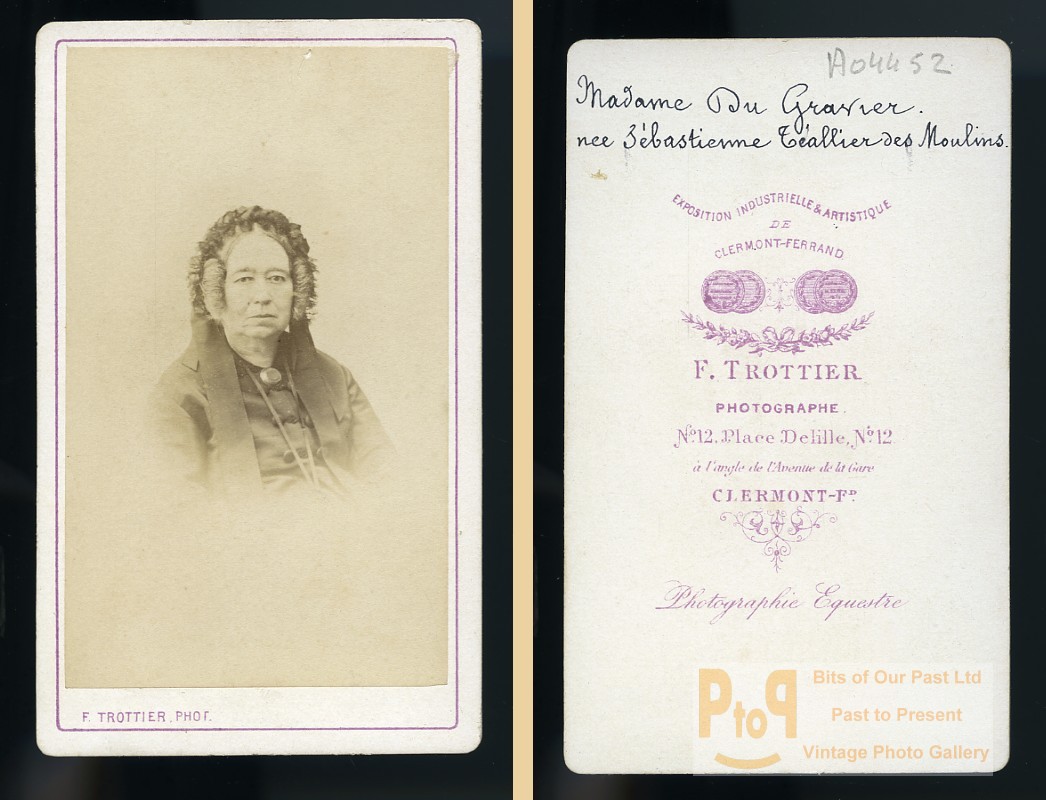 F. TROTTIER, PHOT.
A04452
Madame Du Gravier.
nee Sébastienne Téallier des Moulins.
EXPOSITION INDUSTRIELLE & ARTISTIQUE
DE
CLERMONT-FERRAND
F. TROTTIER
PHOTOGRAPHE.
No 12, Place Delille, No 12
à l'angle de l'Avenue de la Gare
CLERMONT-FD
Photographie Equestre
PtoP
Bits of Our Past Ltd
Past to Present
Vintage Photo Gallery